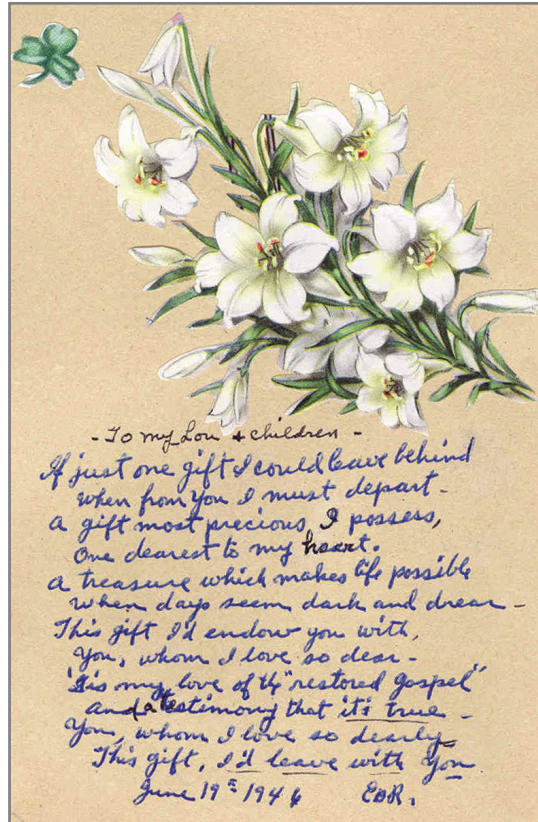 - To my Lou & children -
If just one gift I could leave behind
When from you I must depart -
A gift most precious, I possess,
One dearest to my heart.
A treasure which makes life possible
When days seem dark and drear -
This gift I'd endow you with,
You, whom I love so dear -
'Tis my love of the "restored gospel"
And a testimony that it's true -
You, whom I love so dearly
This gift, I'd leave with you
June 19th 1946 EBR.